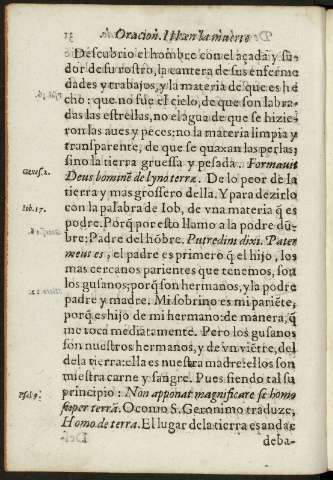 13 Oracion. II. en la muerte
Descubrio el hombre con el açada y su-
dor de su rostro, la cantera de sus enferme
dades y trabajos, y la materia de que es he
cho: que no fue el cielo, de que son labra-
das las estrellas, no el agua de que se hizie-
ron las aues y peces; no la materia limpia y
transparente, de que se quaxan las perlas;
sino la tierra gruessa y pesada. Formauit
Genes. 2.
Deus hominē de lymo terræ. De lo peor de la
tierra y mas grossero della. Y para dezirlo
Iob. 17.
con la palabra de Iob, de vna materia q̃ es
podre. Porq̃ por esto llamo a la podre dū-
bre; Padre del hōbre. Putredini dixi. Pater
meus es; el padre es primero q̃ el hijo, los
mas cercanos parientes que tenemos, son
los gusanos; porq̃ son hermanos, y la podre
padre y madre. Mi sobrino es mi pariēte,
porq̃ es hijo de mi hermano: de manera, q̃
me toca mediatamente. Pero los gusanos
son nuestros hermanos, y de vn viētre, del
de la tierra: ella es nuestra madre: ellos son
nuestra carne y sangre. Pues siendo tal su
Psal. 9.
principio: Non apponat magnificare se homo
super terrā. O como S. Geronimo traduze,
Homo de terra. El lugar de la tierra es andar
deba-